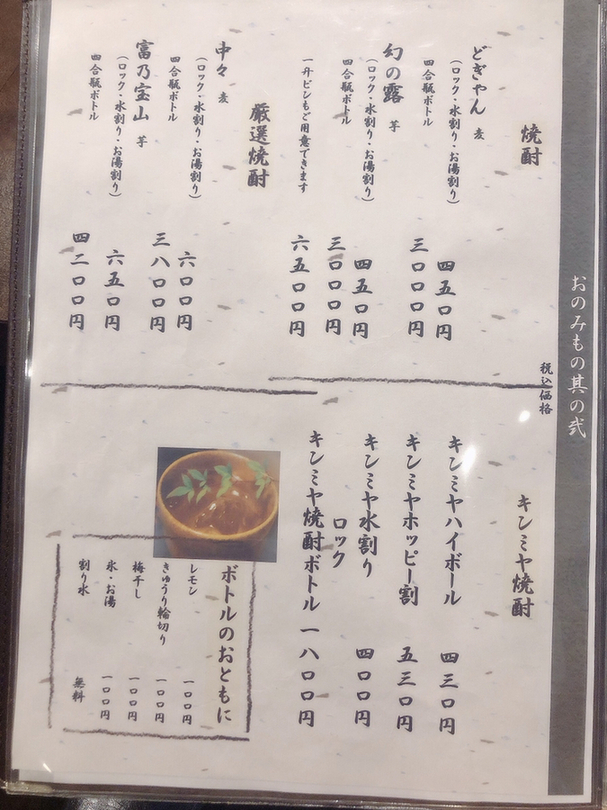 おのみもの其の弐
税込価格
焼酎
どぎゃん 麦
(ロック・水割り・お湯割り) 四五〇円
四合瓶ボトル 三〇〇〇円
幻の露 芋
(ロック・水割り・お湯割り) 四五〇円
四合瓶ボトル 三〇〇〇円
一升ビンもご用意できます 六五〇〇円
厳選焼酎
中々 麦
(ロック・水割り・お湯割り) 六〇〇円
四合瓶ボトル 三八〇〇円
富乃宝山 芋
(ロック・水割り・お湯割り) 六五〇円
四合瓶ボトル 四二〇〇円
キンミヤ焼酎
キンミヤハイボール 四三〇円
キンミヤホッピー割 五三〇円
キンミヤ水割り 四〇〇円
ロック
キンミヤ焼酎ボトル 一八〇〇円
ボトルのおともに
レモン 一〇〇円
きゅうり輪切り 一〇〇円
梅干し 一〇〇円
氷・お湯 一〇〇円
割り水 無料